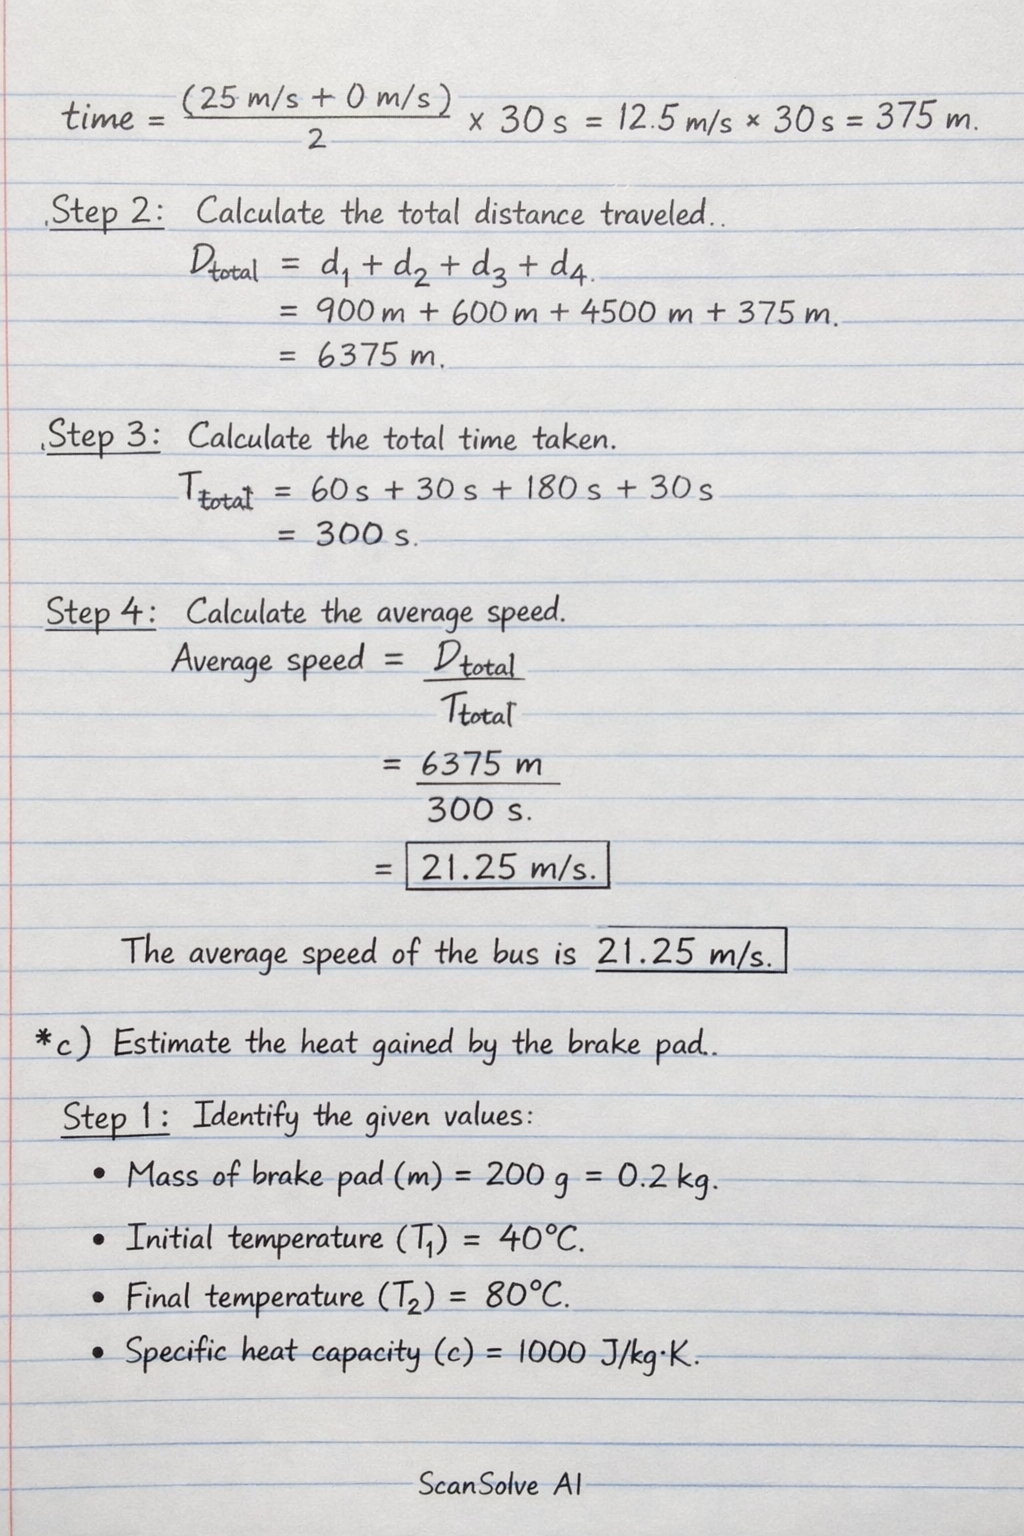 time = (25 m/s + 0 m/s) / 2 × 30 s = 12.5 m/s × 30 s = 375 m.
.Step 2: Calculate the total distance traveled..
Dtotal = d1 + d2 + d3 + d4.
= 900 m + 600 m + 4500 m + 375 m.
= 6375 m.
.Step 3: Calculate the total time taken.
Ttotal = 60 s + 30 s + 180 s + 30 s
= 300 s.
Step 4: Calculate the average speed.
Average speed = Dtotal
Ttotal
= 6375 m
300 s.
= 21.25 m/s.
The average speed of the bus is 21.25 m/s.
*c) Estimate the heat gained by the brake pad..
Step 1: Identify the given values:
• Mass of brake pad (m) = 200 g = 0.2 kg.
• Initial temperature (T1) = 40°C.
• Final temperature (T2) = 80°C.
• Specific heat capacity (c) = 1000 J/kg·K.
ScanSolve AI